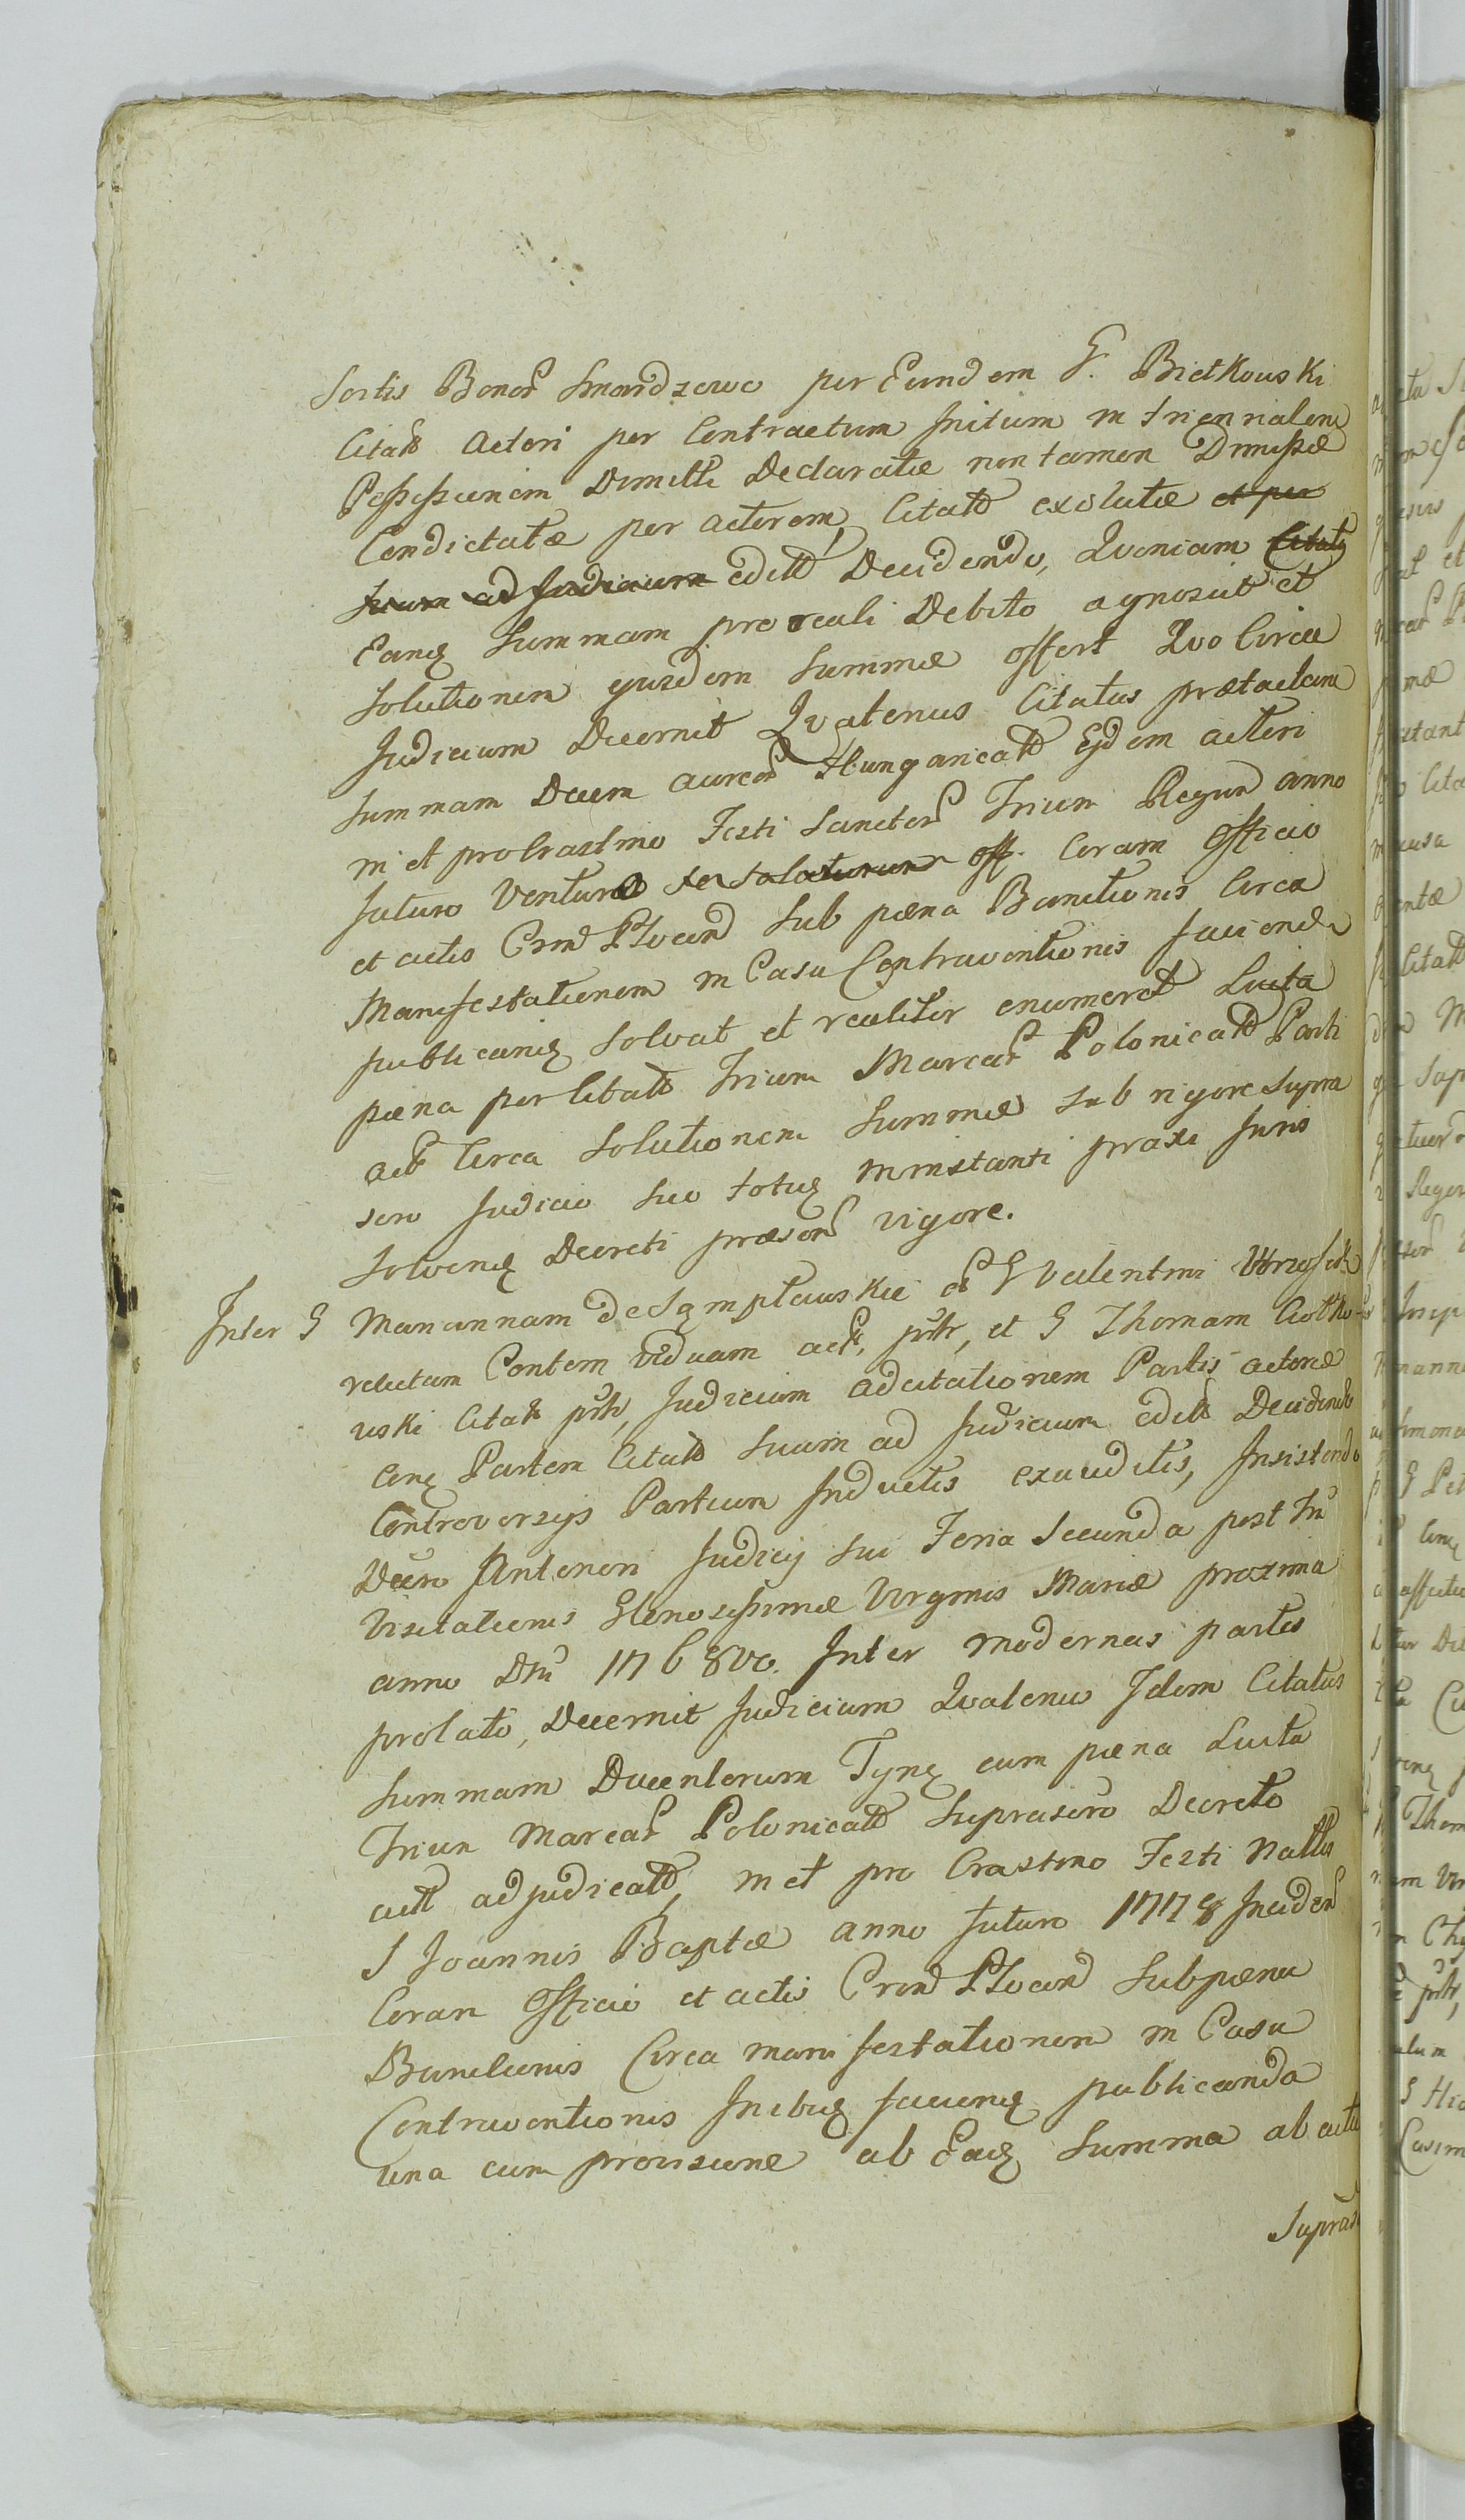 Sortis Bonor Smardzewo per Eundem G. Bietkowski
Citato Actori per Contractum Initum in triennalem
Possessionem Dimitti Declaratæ non tamen Dimissæ
Condictatæ per actorem, Citato exolutæ et per
suum ad Judicium edito Decidendo, Quoniam Citatus
Eanq Summam pro reali Debito agnoscit et
Solutionem ejusdem Summæ offert Quo Circa
Judicium Decernit Quatenus Citatus prætactam
Summam Decem aureor Hungaricat Ejdem actori
in et pro Crastino Festi Sanctor Trium Regum anno
futuro Venturo se soluturum off. Coram Officio
et actis Crnd Plocen Sub pæna Banitionis Circa
Manifestationem in Casu Contraventionis faciend
publicanq Solvat et realiter enumeret Lucta
pæna per Citato Trium Marcar Polonicat Parti
act Circa Solutionem Summæ sub rigore supra
scro Judicio suo totuq in instanti praxi Juris
Solvenq Decreti præsen vigore.
Inter G Mariannam de
relictam Contem viduam act, pstr, et G Thomam
wski Citat pstr, Judicium ad citationem Partis actoreæ
cnq Partem Citato suam ad Judicium edito Decidendo
Controversys Partium Inductis exauditis, Insistendo
Decro Anteriori Judicij sui Feria Secunda post Fm
Visitationis Glorosissimæ Virginis Mariæ proxima
anno Dni 1768vo. Inter modernas partes
prolato, Decernit Judicium Quatenus Idem Citatus
Summam Ducentorum Tynq cum pæna Lucta
Trium Marcar Polonicat Suprascro Decreto
act adjudicato, in et pro Crastino Festi Natlis
S Joannis Baptæ anno futuro 1778 Inciden
Coram Officio et actis Crnd Plocen Sub pæna
Banitionis Circa manifestationem in Casu
Contraventionis Inibiq facienq publicanda
una cum provisione ab Eaq Summa ab actu
Supras